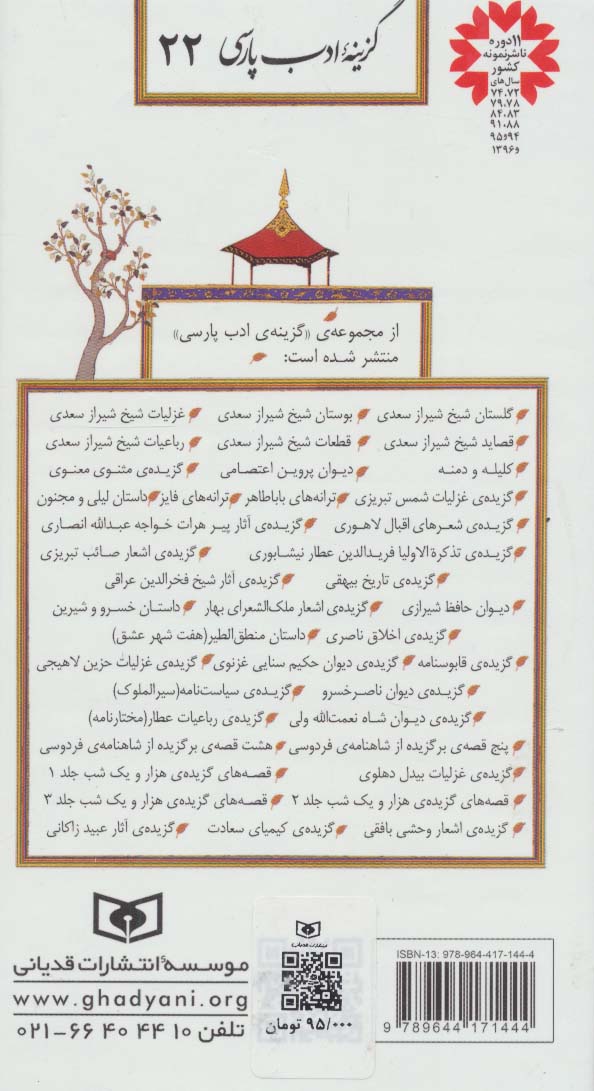 گزینهٔ ادب پارسی ۲۲
۱۱ دوره
ناشر نمونه
کشور
سال‌های
۷۴،۷۲
۷۹،۷۸
۸۴،۸۳
۹۱،۸۸
۹۴و۹۵
و۱۳۹۶
از مجموعه‌ی «گزینه‌ی ادب پارسی»
منتشر شده است:
گلستان شیخ شیراز سعدی بوستان شیخ شیراز سعدی غزلیات شیخ شیراز سعدی
قصاید شیخ شیراز سعدی قطعات شیخ شیراز سعدی رباعیات شیخ شیراز سعدی
کلیله و دمنه دیوان پروین اعتصامی گزیده‌ی مثنوی معنوی
گزیده‌ی غزلیات شمس تبریزی ترانه‌های باباطاهر ترانه‌های فایز داستان لیلی و مجنون
گزیده‌ی شعرهای اقبال لاهوری گزیده‌ی آثار پیر هرات خواجه عبدالله انصاری
گزیده‌ی تذکرة الاولیا فریدالدین عطار نیشابوری گزیده‌ی اشعار صائب تبریزی
گزیده‌ی تاریخ بیهقی گزیده‌ی آثار شیخ فخرالدین عراقی
دیوان حافظ شیرازی گزیده‌ی اشعار ملک‌الشعرای بهار داستان خسرو و شیرین
گزیده‌ی اخلاق ناصری داستان منطق‌الطیر(هفت شهر عشق)
گزیده‌ی قابوسنامه گزیده‌ی دیوان حکیم سنایی غزنوی گزیده‌ی غزلیات حزین لاهیجی
گزیده‌ی دیوان ناصرخسرو گزیده‌ی سیاست‌نامه(سیرالملوک)
گزیده‌ی دیوان شاه نعمت‌الله ولی گزیده‌ی رباعیات عطار(مختارنامه)
پنج قصه‌ی برگزیده از شاهنامه‌ی فردوسی هشت قصه‌ی برگزیده از شاهنامه‌ی فردوسی
گزیده‌ی غزلیات بیدل دهلوی قصه‌های گزیده‌ی هزار و یک شب جلد ۱
قصه‌های گزیده‌ی هزار و یک شب جلد ۲ قصه‌های گزیده‌ی هزار و یک شب جلد ۳
گزیده‌ی اشعار وحشی بافقی گزیده‌ی کیمیای سعادت گزیده‌ی آثار عبید زاکانی
موسسهٔ انتشارات قدیانی
www.ghadyani.org
تلفن ۱۰ ۴۴ ۴۰ ۶۶-۰۲۱
انتشارات قدیانی
۹۵/۰۰۰ تومان
ISBN-13: 978-964-417-144-4
9 789644 171444